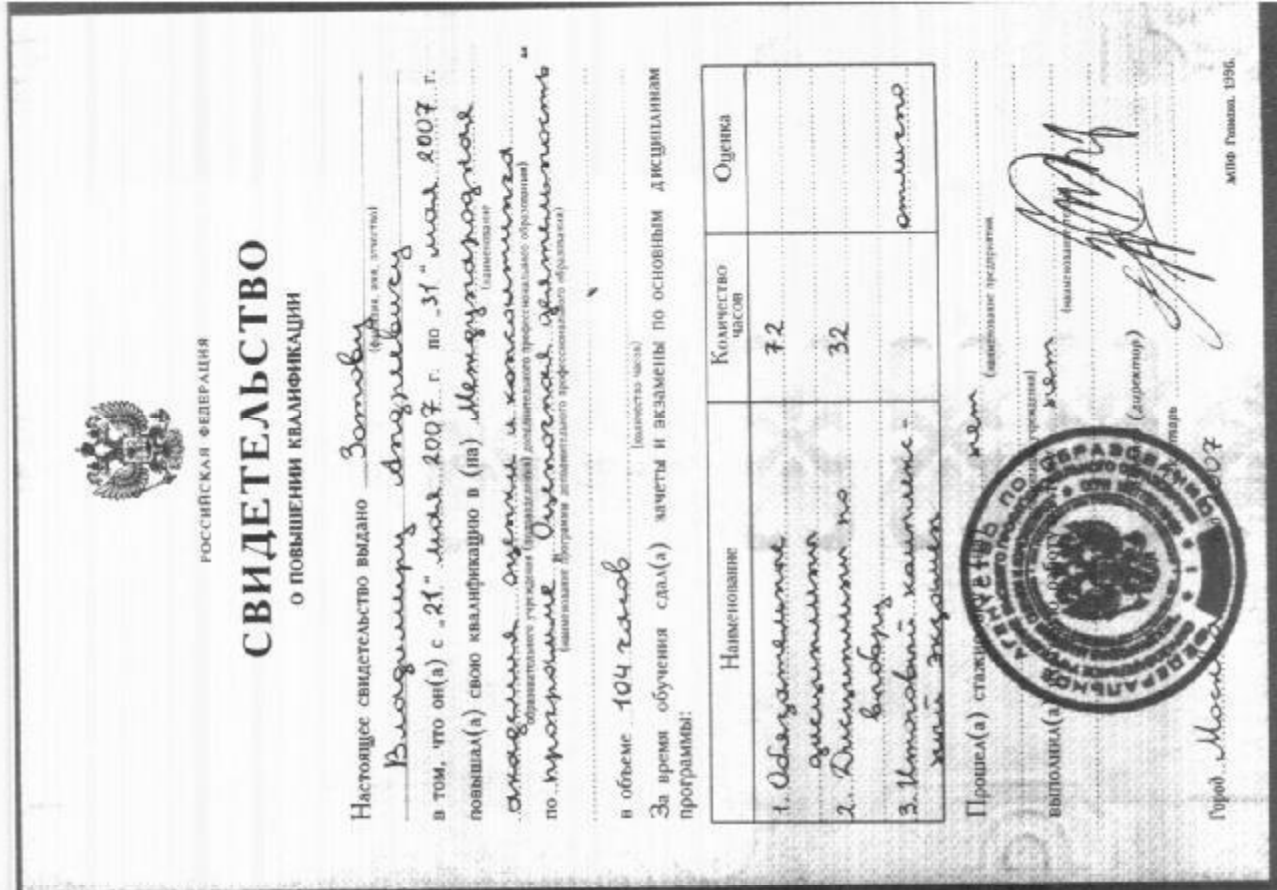 РОССИЙСКАЯ ФЕДЕРАЦИЯ
СВИДЕТЕЛЬСТВО
О ПОВЫШЕНИИ КВАЛИФИКАЦИИ
Настоящее свидетельство выдано Зотову
(фамилия, имя, отчество)
Владимиру Андреевичу
в том, что он(а) с „21“ мая 2007 г. по „31“ мая 2007 г.
повышал(а) свою квалификацию в (на) Международная
(наименование)
академия оценки и консалтинга
образовательного учреждения (подразделения) дополнительного профессионального образования)
по программе „Оценочная деятельность“
(наименование программы дополнительного профессионального образования)
в объеме 104 часов
(количество часов)
За время обучения сдал(а) зачеты и экзамены по основным дисциплинам
программы:
Наименование Количество часов Оценка
1. Обязательные 72
дисциплины
2. Дисциплины по 32
выбору
3. Итоговый комплекс- отлично
ный экзамен
Прошел(а) нет
(наименование предприятия,
учреждения)
выполнил(а) нет
(наименование
(директор)
ФЕДЕРАЛЬНОЕ АГЕНТСТВО ПО ОБРАЗОВАНИЮ
Город Москва 07
МПФ Гознака. 1996.